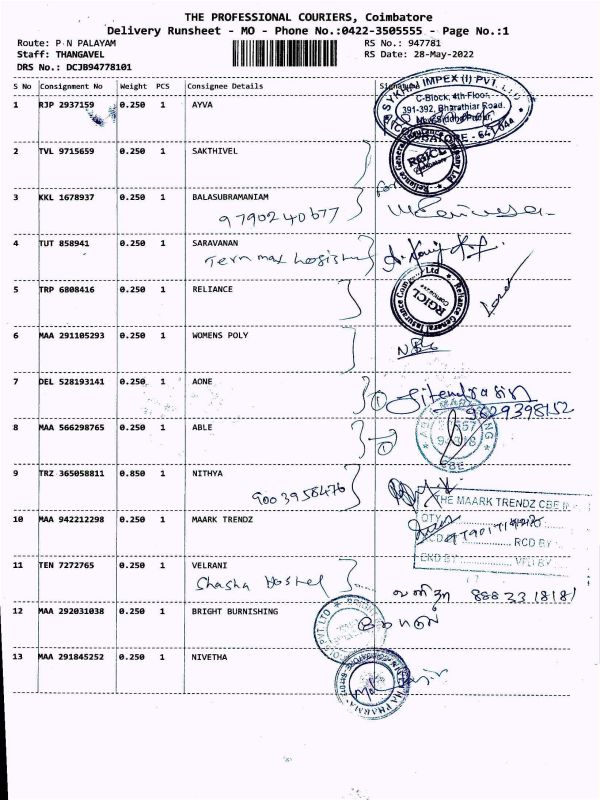 THE PROFESSIONAL COURIERS, Coimbatore
Delivery Runsheet - MO - Phone No.:0422-3505555 - Page No.:1
Route: P N PALAYAM RS No.: 947781
Staff: THANGAVEL RS Date: 28-May-2022
DRS No.: DCJB94778101
S No Consignment No Weight PCS Consignee Details Signature
SYKHAI IMPEX (I) PVT. LTD
C-Block, 4th Floor,
391-392, Bharathiar Road,
1 RJP 2937159 0.250 1 AYVA
2 TVL 9715659 0.250 1 SAKTHIVEL
Reliance General Insurance Company Ltd
RGICL
3 KKL 1678937 0.250 1 BALASUBRAMANIAM
for
9790240677
4 TUT 858941 0.250 1 SARAVANAN
5 TRP 6808416 0.250 1 RELIANCE
Reliance General Insurance Company Ltd
RGICL
6 MAA 291105293 0.250 1 WOMENS POLY
7 DEL 528193141 0.250 1 AONE
Jitendrasin
9629398152
8 MAA 566298765 0.250 1 ABLE
CBE
9 TRZ 365058811 0.850 1 NITHYA
9003958476
THE MAARK TRENDZ CBE
10 MAA 942212298 0.250 1 MAARK TRENDZ
QTY
RCD BY
CKD BY
11 TEN 7272765 0.250 1 VELRANI
Shasha Hostel
88833 18181
12 MAA 292031038 0.250 1 BRIGHT BURNISHING
13 MAA 291845252 0.250 1 NIVETHA
PHARMA